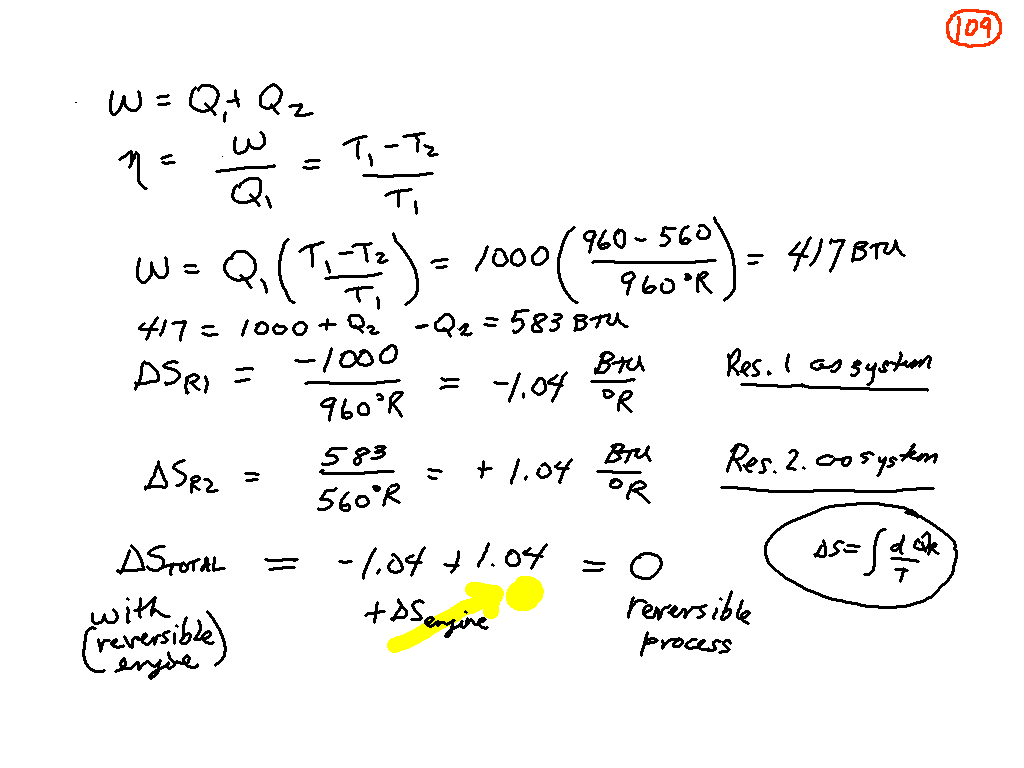 109
W = Q₁ + Q₂
η = W/Q₁ = (T₁ - T₂)/T₁
W = Q₁ ((T₁ - T₂)/T₁) = 1000 ((960 - 560)/960°R) = 417 BTU
417 = 1000 + Q₂ -Q₂ = 583 BTU
ΔS_R1 = -1000/960°R = -1.04 BTU/°R Res. 1 as system
ΔS_R2 = 583/560°R = +1.04 BTU/°R Res. 2. as system
ΔS = ∫ dQ_R/T
ΔS_TOTAL = -1.04 + 1.04 = 0
with (reversible engine) + ΔS_engine reversible process